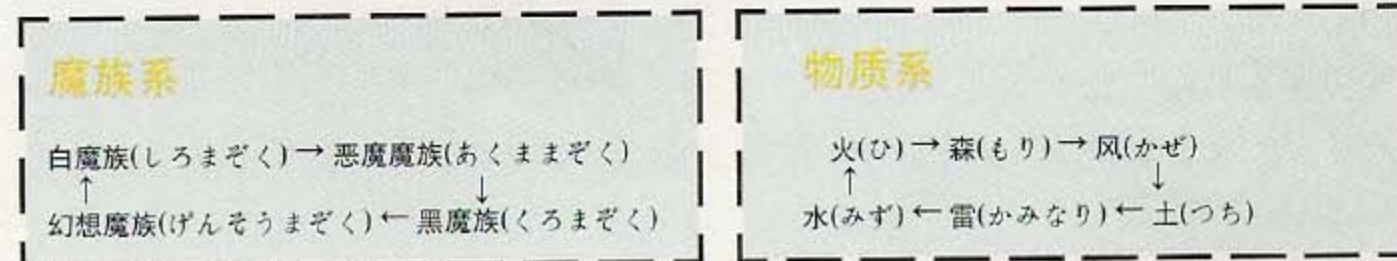 魔族系
白魔族(しろまぞく)→恶魔魔族(あくままぞく)
↑ ↓
幻想魔族(げんそうまぞく)←黑魔族(くろまぞく)
物质系
火(ひ)→森(もり)→风(かぜ)
↑ ↓
水(みず)←雷(かみなり)←土(つち)